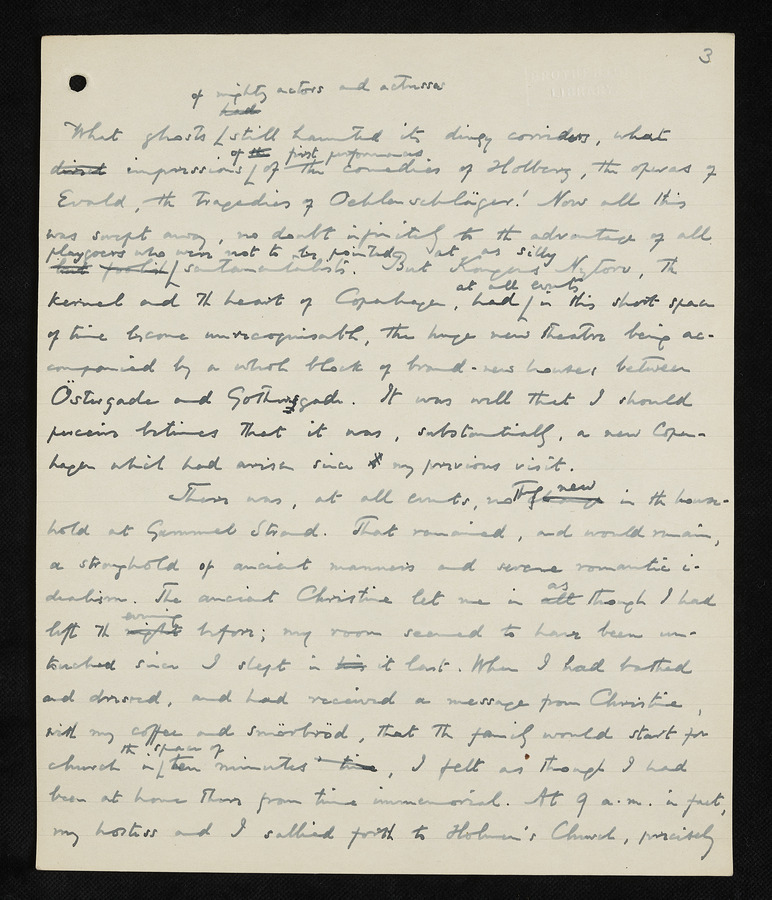 3
of mighty actors and actresses
had
What ghosts still haunted its dingy corridors, what
of the first performances
direct impressions of the comedies of Holberg, the operas of
Ewald, the tragedies of Oehlenschläger! Now all this
was swept away, no doubt infinitely to the advantage of all
playgoers who were not to be pointed at as silly
but foolish sentimentalists. But Kongens Nytorv, the
at all events
kernel and the heart of Copenhagen, had in this short space
of time become unrecognisable, the huge new theatre being ac-
companied by a whole block of brand-new houses between
Östergade and Gothersgade. It was well that I should
perceive betimes that it was, substantially, a new Copen-
hagen which had arisen since my previous visit.
new
There was, at all events, nothing change in the house-
hold at Gammel Strand. That remained, and would remain,
a stronghold of ancient manners and serene romantic i-
as
dealism. The ancient Christine let me in alt though I had
evening
left the night before; my room seemed to have been un-
touched since I slept in his it last. When I had bathed
and dressed, and had received a message from Christine,
with my coffee and smörbröd, that the family would start for
the space of
church in ten minutes' time, I felt as though I had
been at home there from time immemorial. At 9 a.m. in fact,
my hostess and I sallied forth to Holmen's Church, precisely